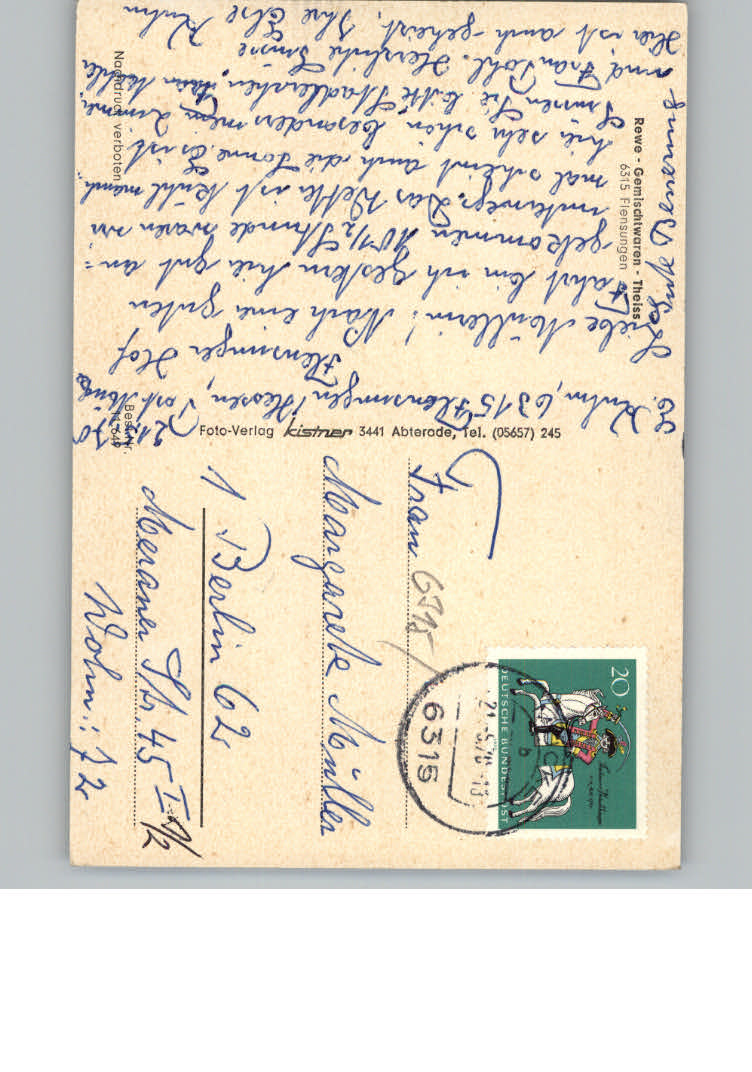 Rewe - Gemischtwaren - Theiss
6315 Flensungen
Nachdruck verboten
Best.-Nr.
Foto-Verlag kistner 3441 Abterode, Tel. (05657) 245
E. Kuhn, 6315 Flensungen/Hessen, Post Mücke
Flensunger Hof
Liebe Müllerin! Nach einer guten
Fahrt bin ich gestern hier gut an=
gekommen 10 1/2 Stunde waren wir
unterwegs. Das Wetter ist kühl manch
mal scheint auch die Sonne. Es ist
hier sehr schön besonders mein Zimmer.
Grüssen Sie bitte
und Frau Pohl. Herzliche Grüsse
Hier ist auch geheizt. Ihre Else Kuhn
Gute Besserung
Frau
6315
Margarete Müller
1 Berlin 62
Meraner Str. 45 I
Wohn.: 72
20
DEUTSCHE BUNDESPOST
6315